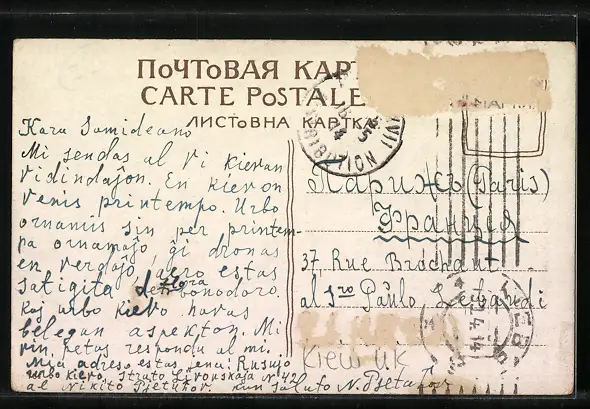 ПОЧТОВАЯ КАР
CARTE POSTALE
ЛИСТОВНА КАРТКА
Kara Samideano
Mi sendas al Vi kievan
vidindaĵon. En Kievon
venis printempo. Urbo
ornamis sin per printem-
pa ornamaĵo, ĝi dronas
en verdaĵo, aero estas
satigita de bonodoro
kaj urbo Kievo havas
belegan aspekton. Mi
vin petas respondu al mi.
Mia adreso estas jena: Rusujo
urbo Kievo, strato Lvovskaja N 42
al Nikito Kun saluto N.
Парижъ (Paris)
Франція
37 Rue Brochant
al Sro Paŭlo
Kiew UK